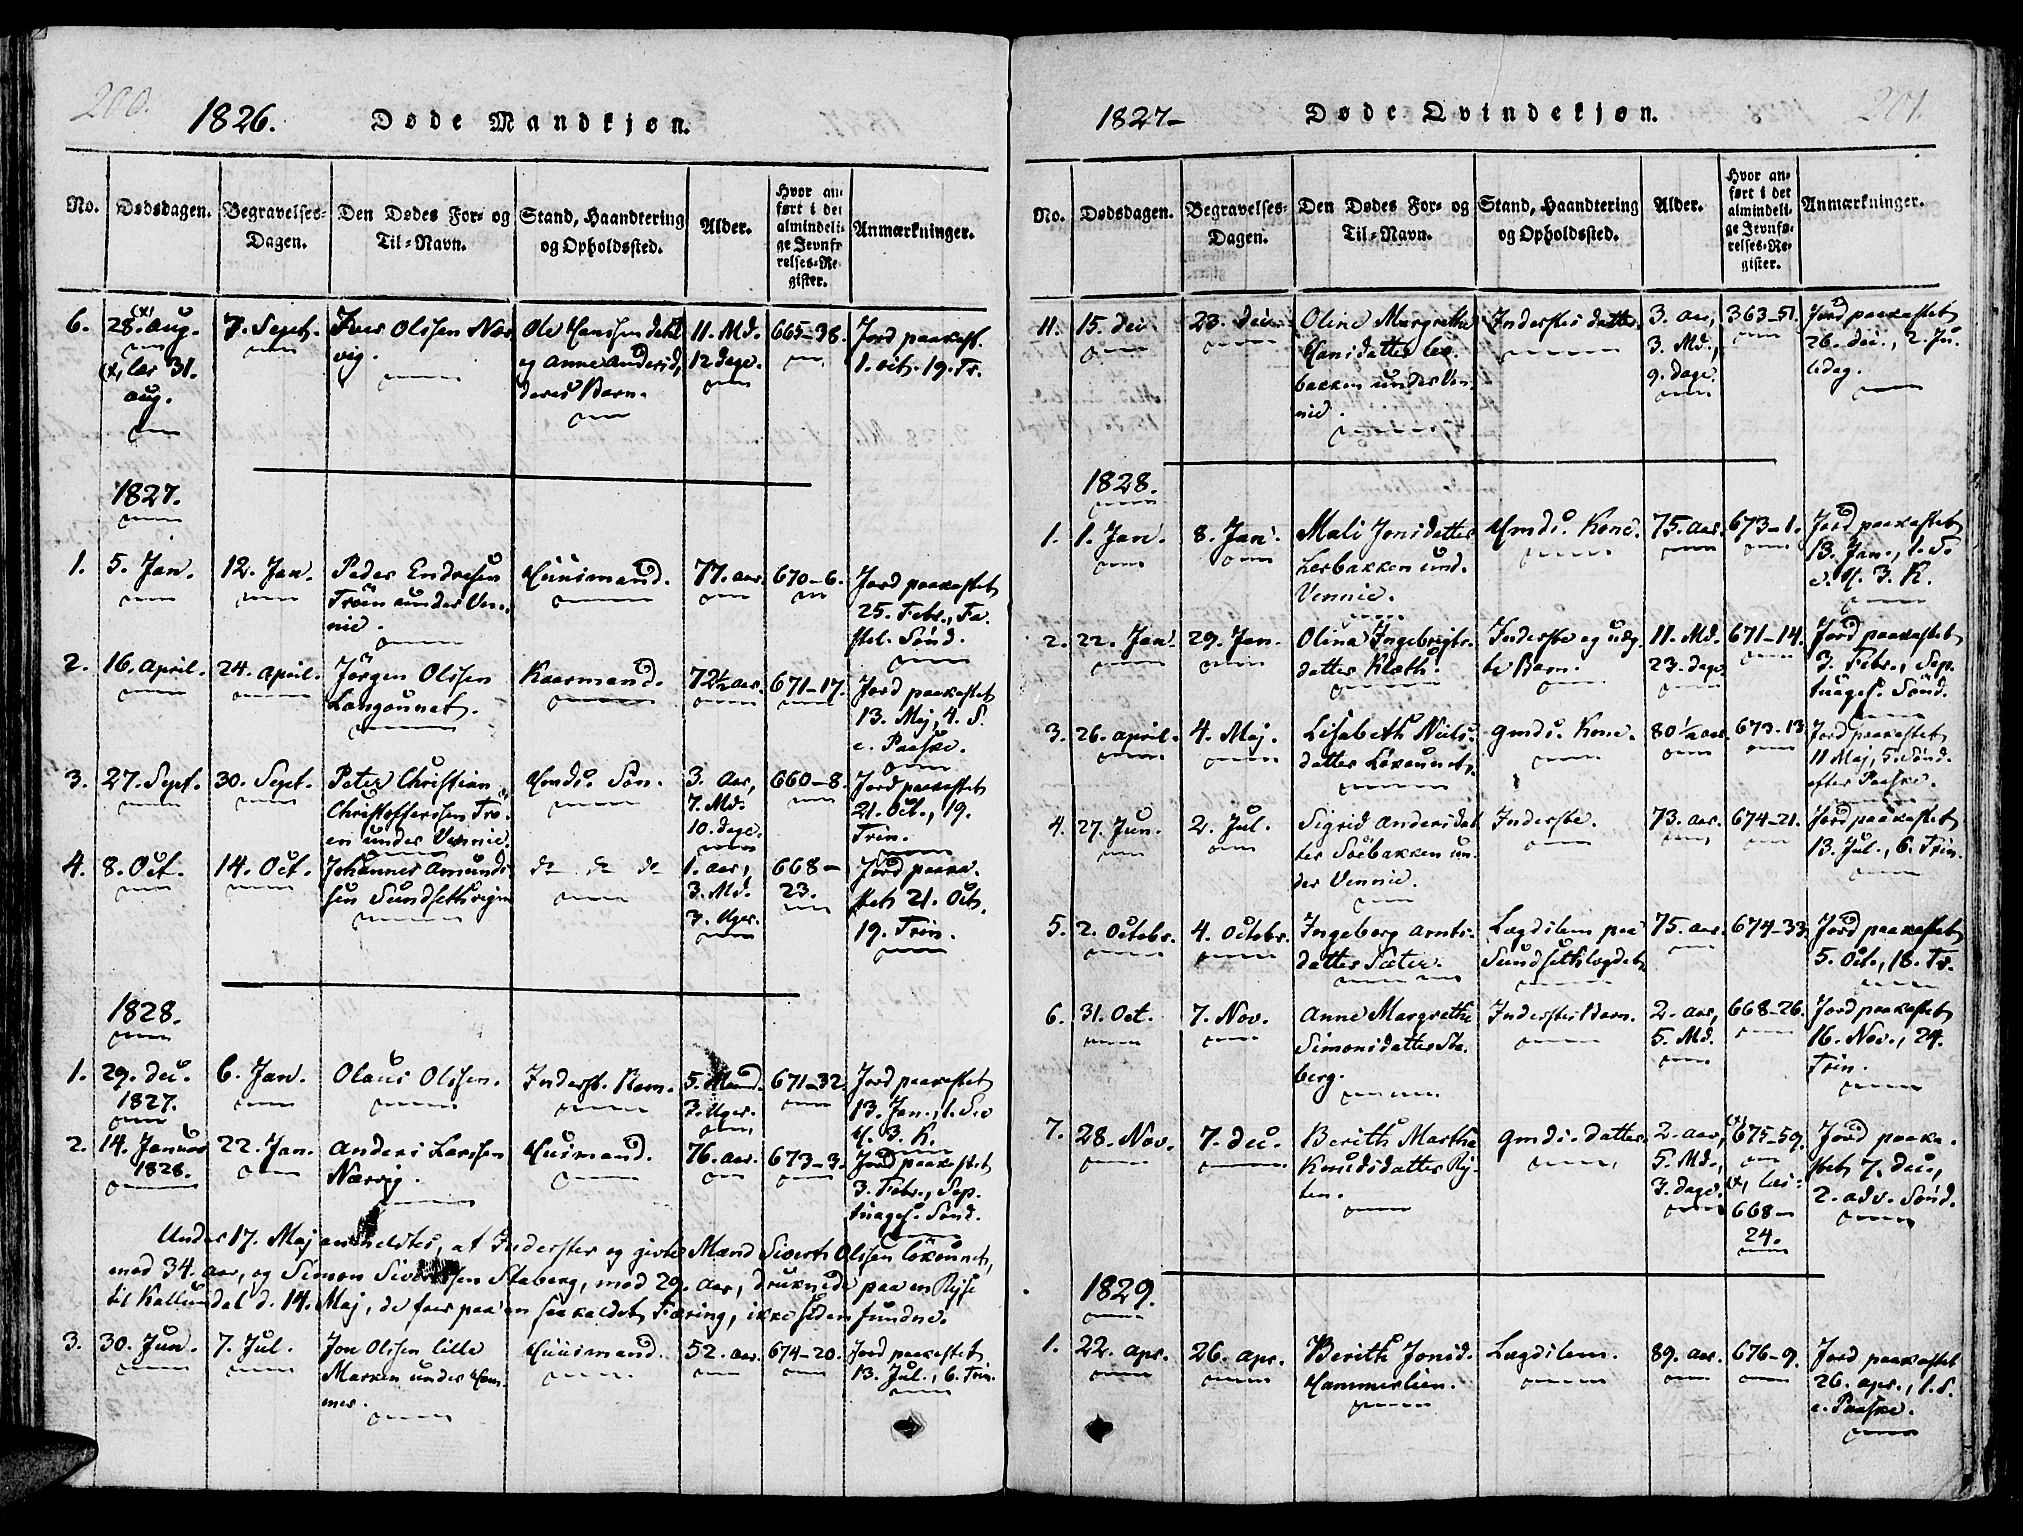 200.
1826. Døde Mandkjøn.
No.
Dødsdagen.
Begravelses-
Dagen.
Den Dødes For- og
Til-Navn.
Stand, Haandtering
og Opholdssted.
Alder.
Hvor an-
ført i det
almindeli-
ge Jevnfø-
relses-Re-
gister.
Anmærkninger.
6.
28. Aug.
læs 31.
Aug.
7. Sept.
Iver Olssen Nær-
vig.
Ole Hanssen
og Anne Andersd,
deres Barn.
11. Md.
12 dage.
665-38.
Jord paakast.
1. Oct. 19. Tr.
1827.
1.
5. Jan.
12. Jan.
Peder Endresen
Tröen under Ven-
nie.
Huusmand.
77. Aar.
670-6.
Jord paakastet
25. Febr., Fa-
stel. Sönd.
2.
16. April.
24. April.
Jörgen Olssen
Langöunet.
Kaarmand.
72½ Aar.
671-17.
Jord paakastet
13. Maj, 4. S.
e. Paaske.
3.
27. Sept.
30. Sept.
Peter Christian
Christoffersen Trö-
en under Vennie.
Hmds. Sön.
3. Aar,
7. Md.
10. dage.
660-8.
Jord paakastet
21. Oct., 19.
Trin.
4.
8. Oct.
14. Oct.
Johannes Amunds-
sen Sundsetsvigen
do do do
1. Aar,
3. Md.
3. Uger.
668-
23.
Jord paaka-
stet 21. Oct.
19. Trin.
1828.
1.
29. Dec.
1827.
6. Jan.
Olaus Olssen.
Inderst. Barn.
5. Maand.
3. Uger.
671-32.
Jord paakastet
13. Jan., 1. S. e
H. 3. K.
2.
14. Januar
1828.
22. Jan.
Anders Larssen
Nærvig.
Huusmand.
76. Aar.
673-3.
Jord paakastet
3. Febr., Sep-
tuages. Sönd.
Under 17. Maj anmeldtes, at Inderster og givte Mænd Sivert Olssen Löxunet,
med 34. Aar, og Simon Sivertsen Staberg, med 29. Aar, druknede paa en Rejse
til Kallundal d. 14. Maj, de foer paa en saakaldet Færing, ikke siden fundne.
3.
30. Jun.
7. Jul.
Jon Olssen Lille
Marken under Ham-
mer.
Huusmand.
52. Aar.
674-20.
Jord paakastet
13. Jul., 6. Trin.
201.
1827- Døde Qvindekjøn.
No.
Dødsdagen.
Begravelses-
Dagen.
Den Dødes For- og
Til-Navn.
Stand, Haandtering
og Opholdssted.
Alder.
Hvor an-
ført i det
almindeli-
ge Jevnfø-
relses-Re-
gister.
Anmærkninger.
11.
15. Dec.
23. Dec.
Oline Margrethe
Hansdatter Ler-
bakken under Ven-
nie.
Inderstes datter.
3. Aar,
3. Md.,
9. dage.
363-51.
Jord paakastet
26. Dec., 2. Ju-
ledag.
1828.
1.
1. Jan.
8. Jan.
Mali Jonsdatter
Lerbakken und.
Vennie.
Hmds. Kone.
75. Aar.
673-1.
Jord paakastet
13. Jan., 1. S.
e. H. 3. K.
2.
22. Jan.
29. Jan.
Olina Ingebrigts-
datter Kleth.
Inderste og uæg-
te Barn.
11. Md.
23. dage.
671-14.
Jord paakastet
3. Febr., Sep-
tuages. Sönd.
3.
26. April.
4. Maj.
Lisabeth Niels-
datter Löxunet.
Gmds. Kone.
80½ Aar.
673-13
Jord paakastet
11 Maj, 5. Sönd.
efter Paaske.
4.
27. Jun.
2. Jul.
Sigrid Andersdat-
ter Soebakken un-
der Vennie.
Inderste.
73. Aar.
674-21.
Jord paakastet
13. Jul., 6. Trin.
5.
2. Octobr.
4. Octobr.
Ingeborg Arnts-
datter Sæter.
Lægdslem paa
Sundsetslægdet.
75. Aar.
674-33
Jord paakastet
5. Oct., 18. Tr.
6.
31. Oct.
7. Nov.
Anne Margrethe
Simonsdatter Sta-
berg.
Inderstes Barn.
2. Aar,
5. Md.
668-26.
Jord paakastet
16. Nov., 24.
Trin.
7.
28. Nov.
7. Dec.
Berith Martha
Knudsdatter Ry-
ten.
Gmds. datter.
2. Aar,
5. Md.,
3. dage.
675-59.
læs:
668-
24.
Jord paaka-
stet 7. Dec.,
2. Adv. Sönd.
1829.
1.
22. Apr.
26. Apr.
Berith Jonsd.
Hammerlien.
Lægdslem.
89. Aar.
676-9.
Jord paakastet
26. Apr., 1. S.
e. Paaske.